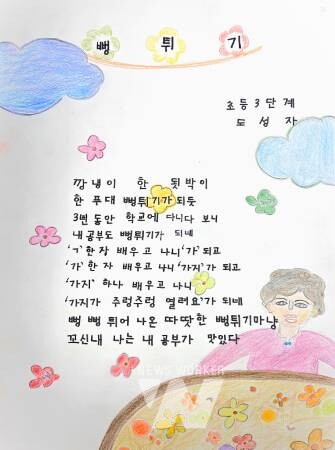 뻥 튀 기
초등3단계
도성자
깡냉이 한 됫박이
한 푸대 뻥튀기가 되듯
3번 동안 학교에 다니다 보니
내 공부도 뻥튀기가 되네
'ㄱ'한장 배우고 나니 '가'되고
'가'한자 배우고 나니 '가지'가 되고
'가지' 하나 배우고 나니
'가지가 주렁주렁 열려요'가 되네
뻥 뻥 튀어 나온 따땃한 뻥튀기마냥
꼬신내 나는 내 공부가 맛있다
NEWS WORKER